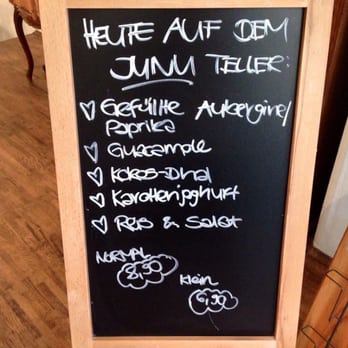 HEUTE AUF DEM
JUNU TELLER:
♡ Gefüllte Aubergine/
Paprika
♡ Guacamole
♡ Kokos-Dhal
♡ Karottenjoghurt
♡ Reis & Salat
NORMAL
8,90
Klein
6,90